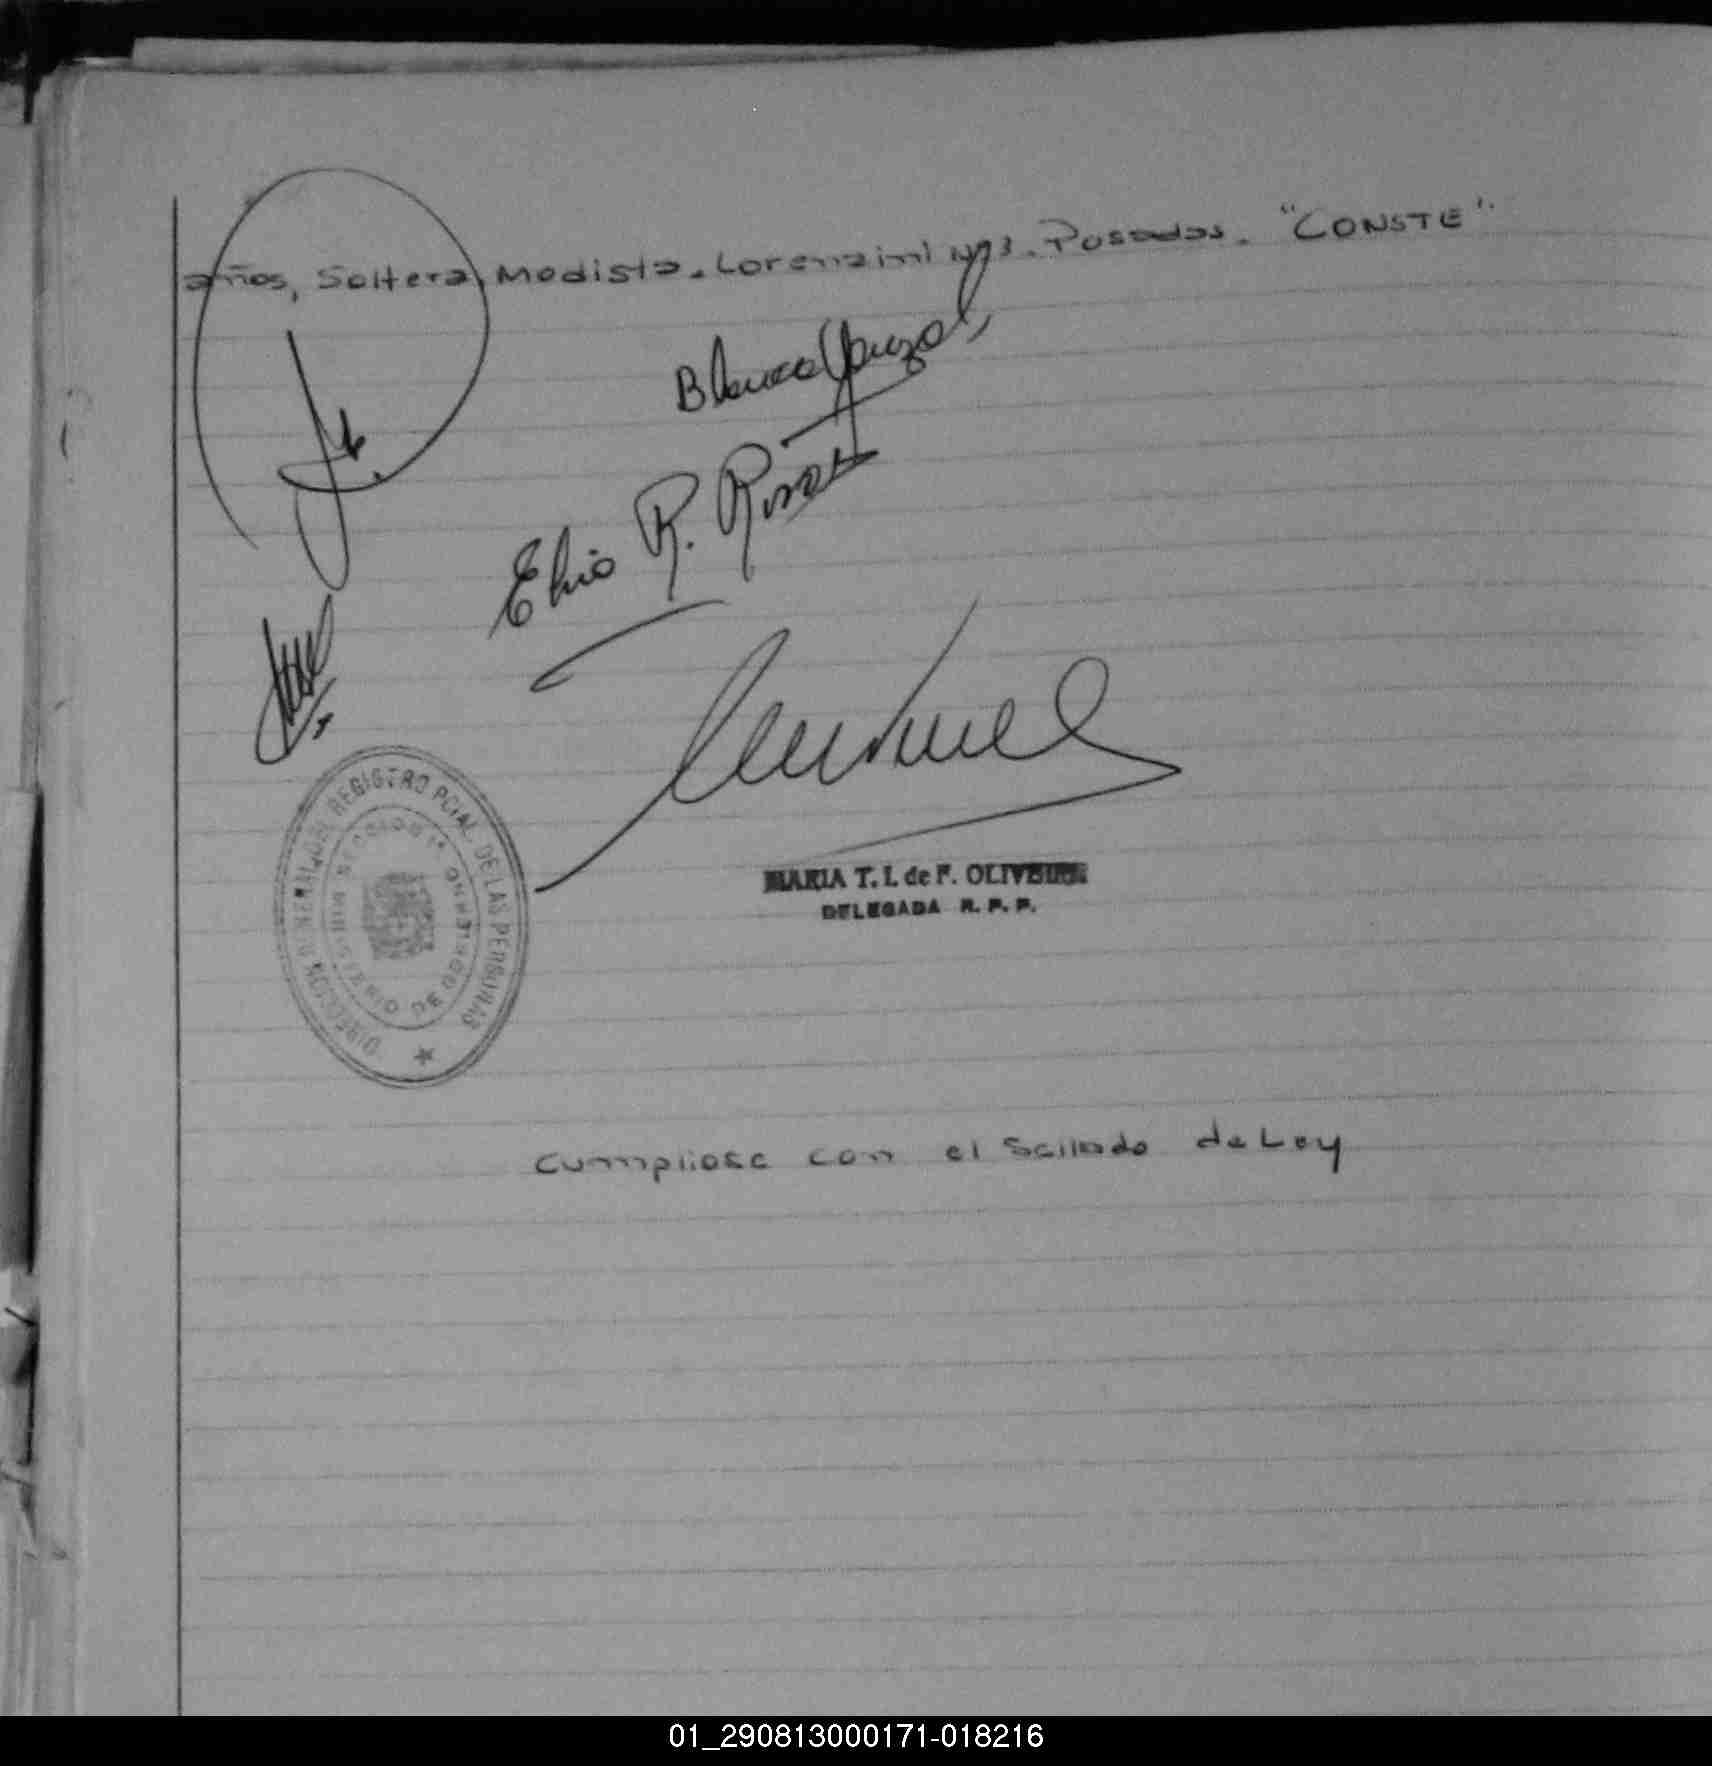 años, Soltera, Modista. Lorenzini Nº3. Posadas. "CONSTE"
Blanca
Elvio R.
DIRECCION GENERAL DEL REGISTRO PCIAL. DE LAS PERSONAS
MINISTERIO DE GOBIERNO
SECCION 1ª
MARIA T. I. de F. OLIVEIRA
DELEGADA R. P. P.
cumpliose con el Sellado de Ley
01_290813000171-018216